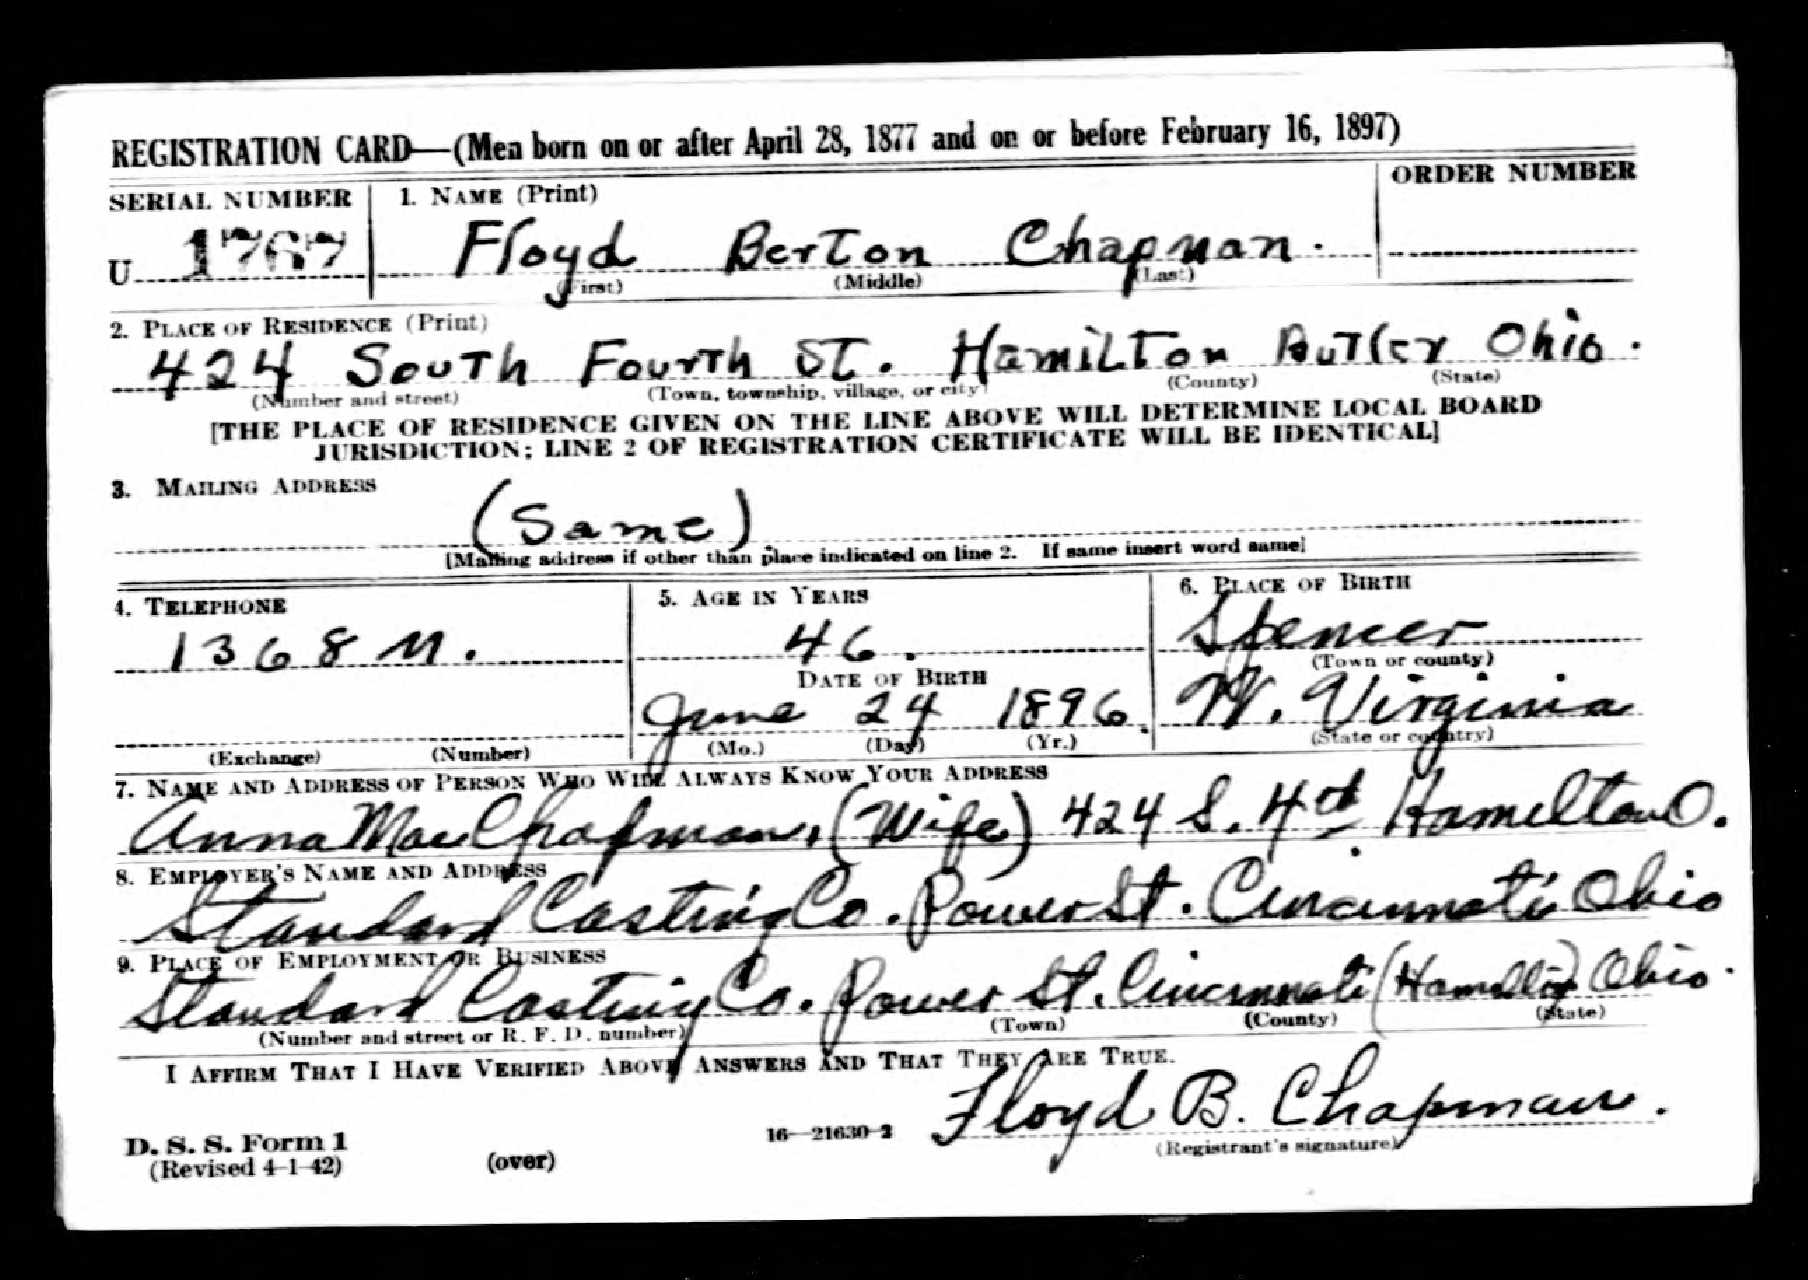 REGISTRATION CARD—(Men born on or after April 28, 1877 and on or before February 16, 1897)
SERIAL NUMBER
1. NAME (Print)
ORDER NUMBER
U 1767
Floyd Berton Chapman.
(First) (Middle) (Last)
2. PLACE OF RESIDENCE (Print)
424 South Fourth St. Hamilton Butler Ohio.
(Number and street) (Town, township, village, or city) (County) (State)
[THE PLACE OF RESIDENCE GIVEN ON THE LINE ABOVE WILL DETERMINE LOCAL BOARD
JURISDICTION; LINE 2 OF REGISTRATION CERTIFICATE WILL BE IDENTICAL]
3. MAILING ADDRESS
(Same)
[Mailing address if other than place indicated on line 2. If same insert word same]
4. TELEPHONE
1368 M.
(Exchange) (Number)
5. AGE IN YEARS
46.
DATE OF BIRTH
June 24 1896.
(Mo.) (Day) (Yr.)
6. PLACE OF BIRTH
Spencer
(Town or county)
W. Virginia
(State or country)
7. NAME AND ADDRESS OF PERSON WHO WILL ALWAYS KNOW YOUR ADDRESS
Anna Mae Chapman, (Wife) 424 S. 4th Hamilton O.
8. EMPLOYER'S NAME AND ADDRESS
Standard Casting Co. Power St. Cincinnati Ohio
9. PLACE OF EMPLOYMENT OR BUSINESS
Standard Casting Co. Power St. Cincinnati (Hamilton) Ohio.
(Number and street or R. F. D. number) (Town) (County) (State)
I AFFIRM THAT I HAVE VERIFIED ABOVE ANSWERS AND THAT THEY ARE TRUE.
Floyd B. Chapman.
(Registrant's signature)
D. S. S. Form 1
(Revised 4-1-42)
(over)
16—21630-2